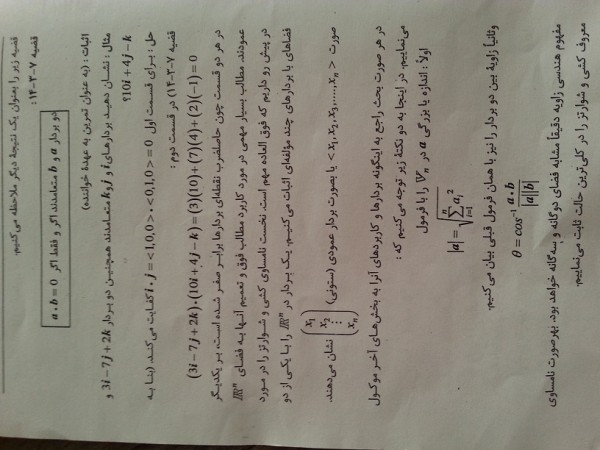 قضیه زیر را بعنوان یک نتیجهٔ دیگر ملاحظه می‌کنیم.
قضیه ۷-۳-۱۴:
دو بردار a و b متعامدند اگر و فقط اگر a • b = 0
اثبات: (به عنوان تمرین به عهدهٔ خواننده)
مثال: نشان دهید بردارهای i و j و k متعامدند همچنین دو بردار 3i − 7j + 2k و
10i + 4j − k؟
حل: برای قسمت اول i • j = <1,0,0> • <0,1,0> = 0 کفایت می‌کند. (بنا به
قضیه ۷-۳-۱۴) در قسمت دوم:
(3i − 7j + 2k) • (10i + 4j − k) = (3)(10) + (7)(4) + (2)(−1) = 0
در هر دو قسمت چون حاصلضرب نقطه‌ای بردارها برابر صفر شده است، بر یکدیگر
عمودند. مطالب بسیار مهمی در مورد کاربرد مطالب فوق و تعمیم آنها به فضای IRⁿ
در پیش رو داریم که فوق العاده مهم است. نخست نامساوی کشی و شوارتز را در مورد
فضاهای با بردارهای چند مؤلفه‌ای اثبات می‌کنیم. یک بردار در IRⁿ را با یکی از دو
صورت <x₁, x₂, x₃, ....., xₙ> یا بصورت بردار عمودی (ستونی) (x₁ x₂ ⋮ xₙ) نشان می‌دهند.
در هر صورت بحث راجع به اینگونه بردارها و کاربردهای آنرا به بخش‌های آخر موکول
می‌نماییم. در اینجا به دو نکتهٔ زیر توجه می‌کنیم که:
اولاً: اندازه یا بزرگی a در Vₙ را با فرمول
|a| = √(∑ᵢ₌₁ⁿ aᵢ²)
وثانیاً زاویهٔ بین دو بردار را نیز با همان فرمول قبلی بیان می‌کنیم.
θ = cos⁻¹ (a • b / |a||b|)
مفهوم هندسی زاویه دقیقاً مشابه فضای دوگانه و سه‌گانه خواهد بود. بهرصورت نامساوی
معروف کشی و شوارتز را در کلی‌ترین حالت ثابت می‌نماییم.